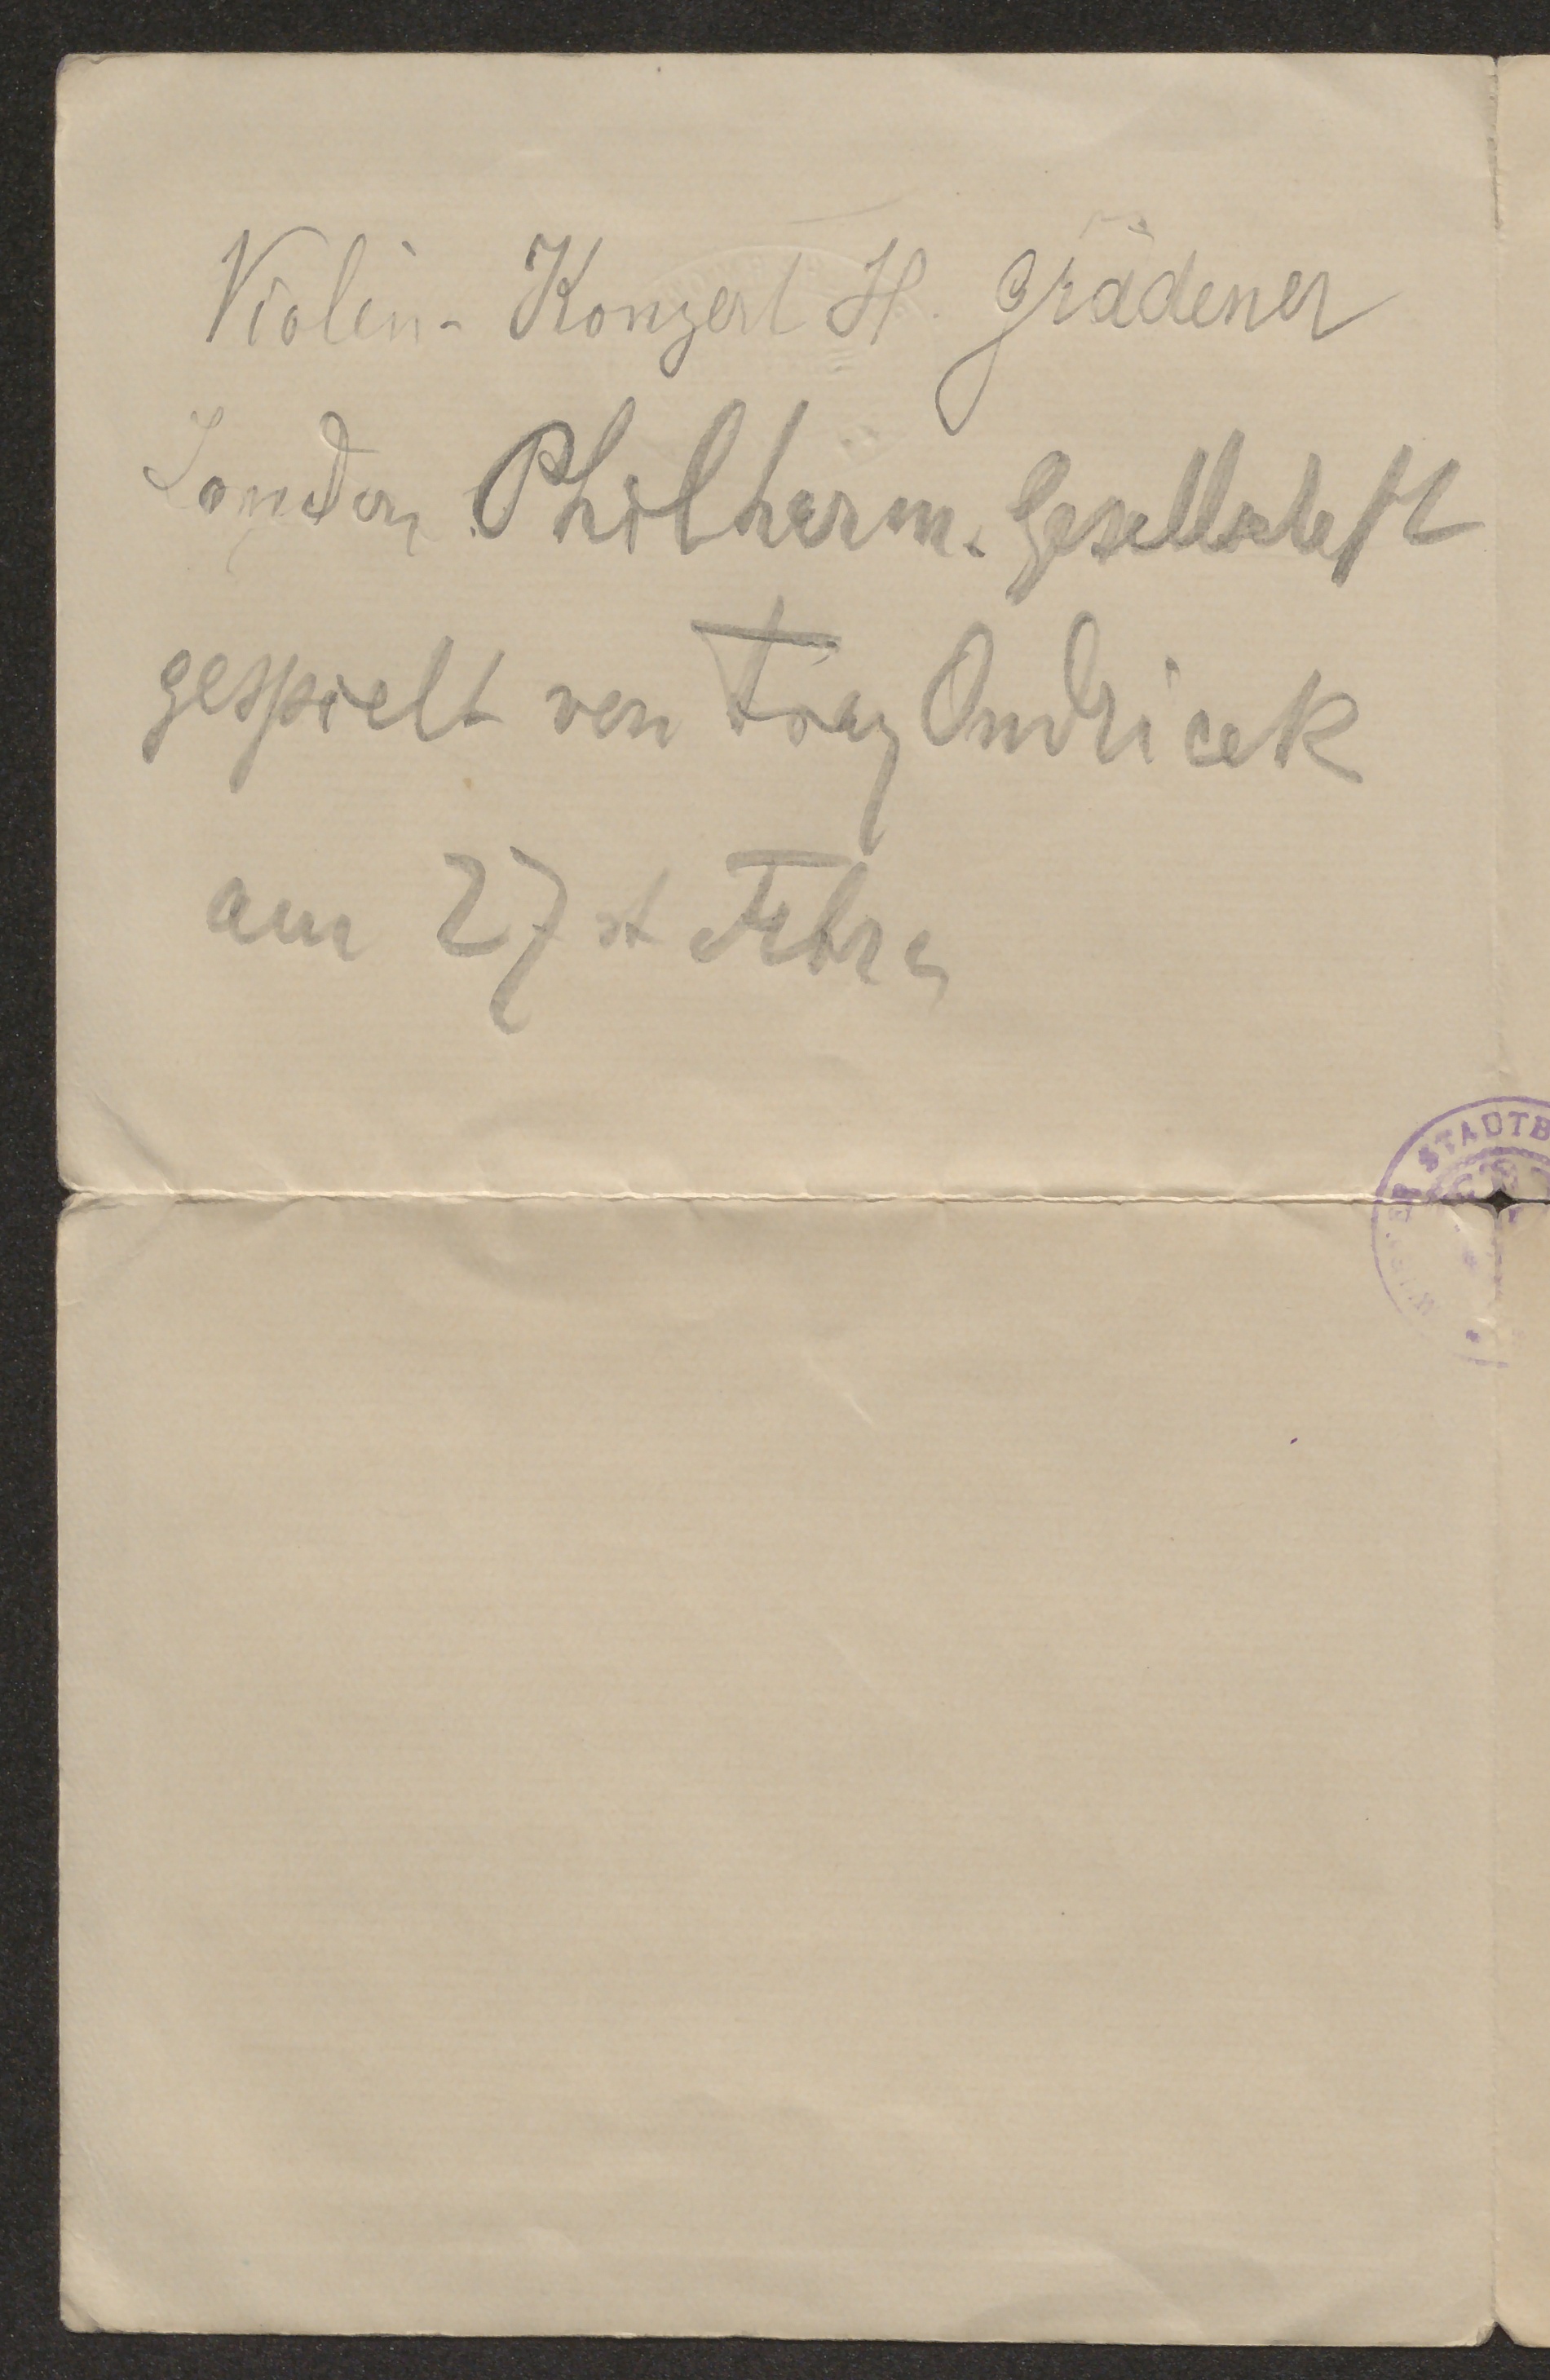 Violin- Konzert H. Grädener
London Philharm. Gesellschaft
gespielt von Franz Ondricek
am 27st Febr.
STADTB